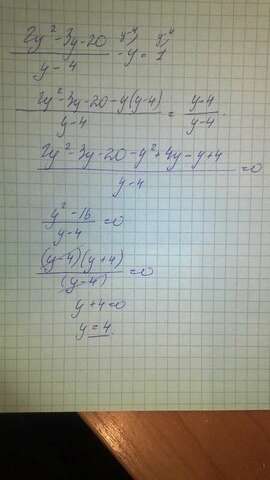 (2y² - 3y - 20)/(y - 4) - y = 1
(2y² - 3y - 20 - y(y-4))/(y-4) = (y-4)/(y-4)
(2y² - 3y - 20 - y² + 4y - y + 4)/(y-4) = 0
(y² - 16)/(y-4) = 0
((y-4)(y+4))/(y-4) = 0
y + 4 = 0
y = 4.